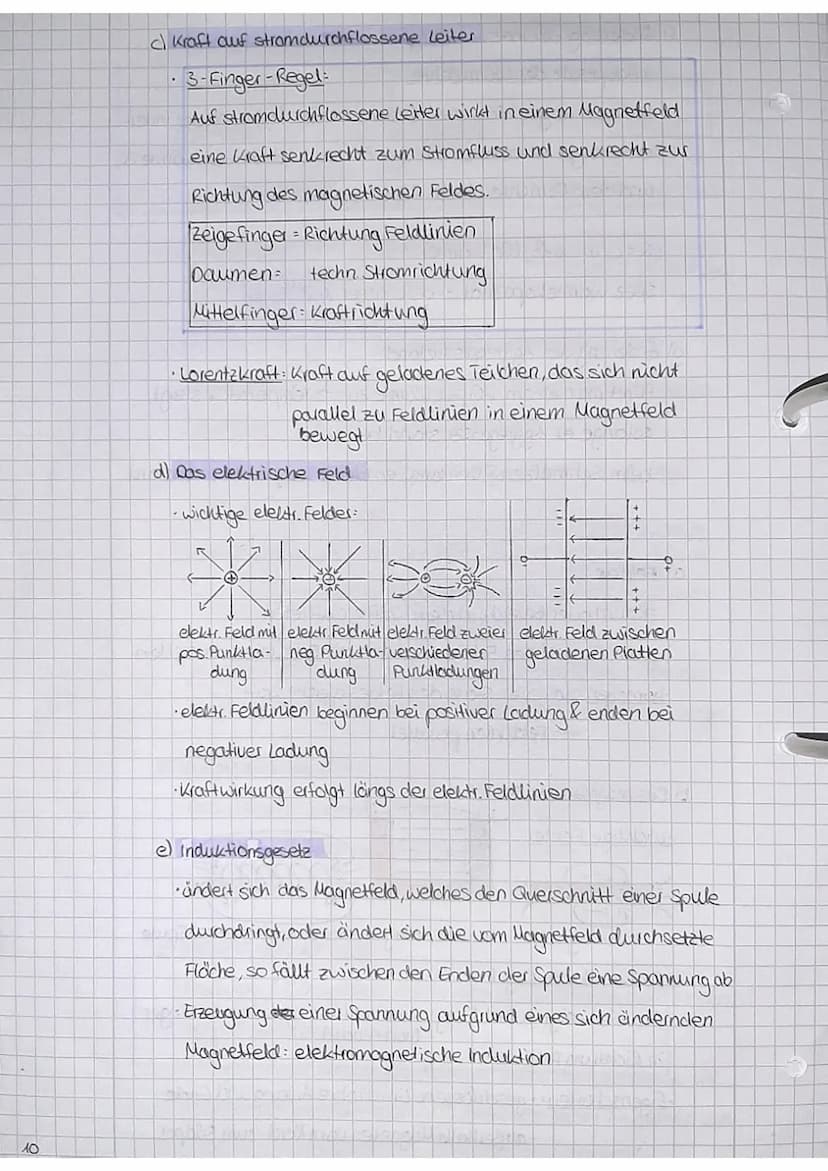 c) Kraft auf stromdurchflossene Leiter
· 3-Finger-Regel:
Auf stromdurchflossene Leiter wirkt in einem Magnetfeld
eine Kraft senkrecht zum Stromfluss und senkrecht zur
Richtung des magnetischen Feldes.
Zeigefinger = Richtung Feldlinien
Daumen = techn. Stromrichtung
Mittelfinger = Kraftrichtung
· Lorentzkraft: Kraft auf geladenes Teilchen, das sich nicht
parallel zu Feldlinien in einem Magnetfeld
bewegt
d) Das elektrische Feld
· wichtige elektr. Felder:
elektr. Feld mit pos. Punktla-dung
elektr. Feld mit neg. Punktla-dung
elektr. Feld zweier verschiedener Punktladungen
elektr. Feld zwischen geladenen Platten
· elektr. Feldlinien beginnen bei positiver Ladung & enden bei
negativer Ladung
· Kraftwirkung erfolgt längs der elektr. Feldlinien
e) Induktionsgesetz
· ändert sich das Magnetfeld, welches den Querschnitt einer Spule
durchdringt, oder ändert sich die vom Magnetfeld durchsetzte
Fläche, so fällt zwischen den Enden der Spule eine Spannung ab
· Erzeugung einer Spannung aufgrund eines sich ändernden
Magnetfeld: elektromagnetische Induktion
10